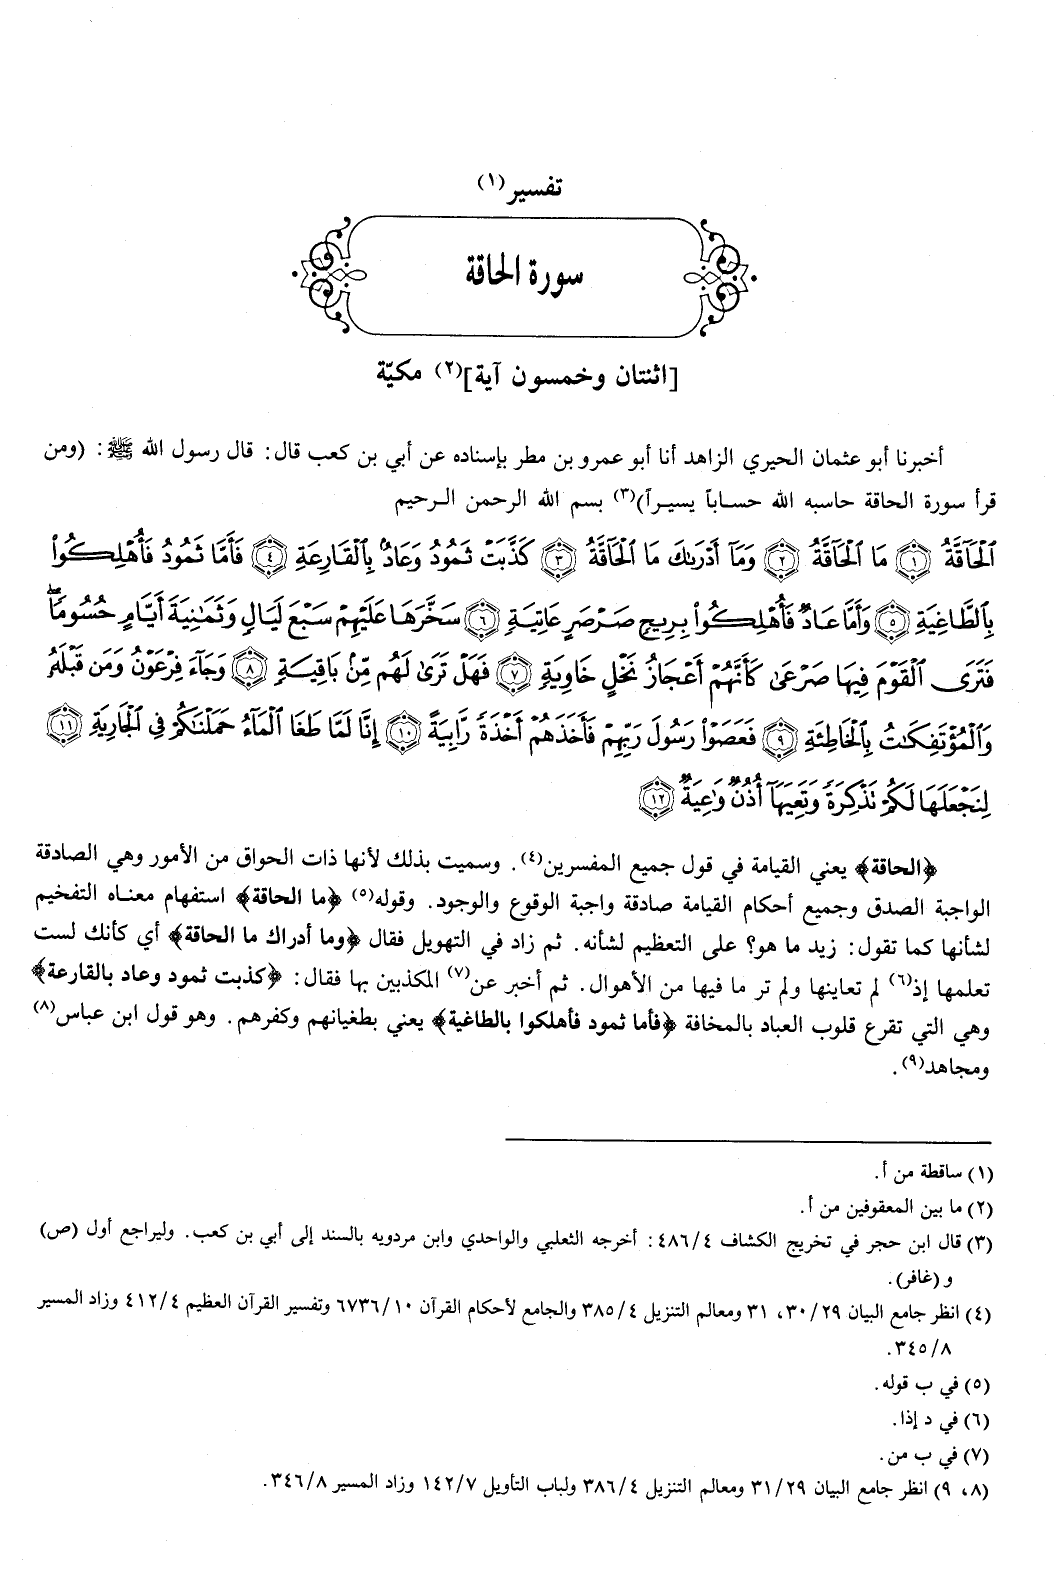 تفسير(١)
سورة الحاقة
[اثنتان وخمسون آية](٢) مكيّة
أخبرنا أبو عثمان الحيري الزاهد أنا أبو عمرو بن مطر بإسناده عن أبي بن كعب قال: قال رسول الله ﷺ: (ومن
قرأ سورة الحاقة حاسبه الله حساباً يسيراً)(٣) بسم الله الرحمن الرحيم
ٱلْحَآقَّةُ ١ مَا ٱلْحَآقَّةُ ٢ وَمَآ أَدْرَىٰكَ مَا ٱلْحَآقَّةُ ٣ كَذَّبَتْ ثَمُودُ وَعَادٌۢ بِٱلْقَارِعَةِ ٤ فَأَمَّا ثَمُودُ فَأُهْلِكُوا۟
بِٱلطَّاغِيَةِ ٥ وَأَمَّا عَادٌ فَأُهْلِكُوا۟ بِرِيحٍ صَرْصَرٍ عَاتِيَةٍ ٦ سَخَّرَهَا عَلَيْهِمْ سَبْعَ لَيَالٍ وَثَمَٰنِيَةَ أَيَّامٍ حُسُومًاۖ
فَتَرَى ٱلْقَوْمَ فِيهَا صَرْعَىٰ كَأَنَّهُمْ أَعْجَازُ نَخْلٍ خَاوِيَةٍ ٧ فَهَلْ تَرَىٰ لَهُم مِّنۢ بَاقِيَةٍ ٨ وَجَآءَ فِرْعَوْنُ وَمَن قَبْلَهُۥ
وَٱلْمُؤْتَفِكَٰتُ بِٱلْخَاطِئَةِ ٩ فَعَصَوْا۟ رَسُولَ رَبِّهِمْ فَأَخَذَهُمْ أَخْذَةً رَّابِيَةً ١٠ إِنَّا لَمَّا طَغَا ٱلْمَآءُ حَمَلْنَٰكُمْ فِى ٱلْجَارِيَةِ ١١
لِنَجْعَلَهَا لَكُمْ تَذْكِرَةً وَتَعِيَهَآ أُذُنٌ وَٰعِيَةٌ ١٢
﴿الحاقة﴾ يعني القيامة في قول جميع المفسرين(٤). وسميت بذلك لأنها ذات الحواق من الأمور وهي الصادقة
الواجبة الصدق وجميع أحكام القيامة صادقة واجبة الوقوع والوجود. وقوله(٥) ﴿ما الحاقة﴾ استفهام معناه التفخيم
لشأنها كما تقول: زيد ما هو؟ على التعظيم لشأنه. ثم زاد في التهويل فقال ﴿وما أدراك ما الحاقة﴾ أي كأنك لست
تعلمها إذ(٦) لم تعاينها ولم تر ما فيها من الأهوال. ثم أخبر عن(٧) المكذبين بها فقال: ﴿كذبت ثمود وعاد بالقارعة﴾
وهي التي تقرع قلوب العباد بالمخافة ﴿فأما ثمود فأهلكوا بالطاغية﴾ يعني بطغيانهم وكفرهم. وهو قول ابن عباس(٨)
ومجاهد(٩).
(١) ساقطة من أ.
(٢) ما بين المعقوفين من أ.
(٣) قال ابن حجر في تخريج الكشاف ٤/٤٨٦: أخرجه الثعلبي والواحدي وابن مردويه بالسند إلى أبي بن كعب. وليراجع أول (ص)
و (غافر).
(٤) انظر جامع البيان ٢٩/٣٠، ٣١ ومعالم التنزيل ٤/٣٨٥ والجامع لأحكام القرآن ١٠/٦٧٣٦ وتفسير القرآن العظيم ٤/٤١٢ وزاد المسير
٨/٣٤٥.
(٥) في ب قوله.
(٦) في د إذا.
(٧) في ب من.
(٨، ٩) انظر جامع البيان ٢٩/٣١ ومعالم التنزيل ٤/٣٨٦ ولباب التأويل ٧/١٤٢ وزاد المسير ٨/٣٤٦.